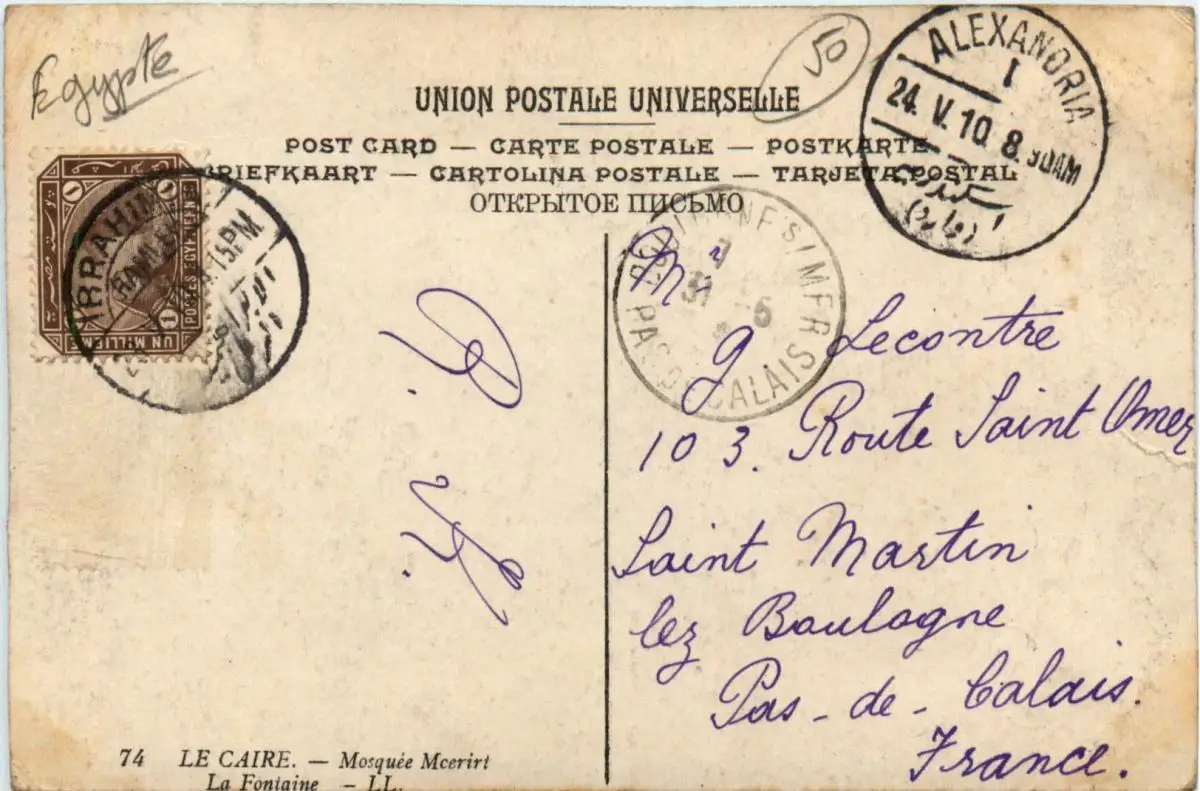 Egypte
50
UNION POSTALE UNIVERSELLE
POST CARD — CARTE POSTALE — POSTKARTE
BRIEFKAART — CARTOLINA POSTALE — TARJETA POSTAL
ОТКРЫТОЕ ПИСЬМО
ALEXANDRIA
I
24. V. 10. 8.30AM
POSTES EGYPTIENNES
UN MILLIEME
1
1
1
IBRAHIMIEH
RAMLEH
.15PM
BOULOGNE S/MER
31 - 5
PAS DE CALAIS
Mr
g Lecontre
103. Route Saint Omer
Saint Martin
lez Boulogne
Pas-de-Calais.
France.
74 LE CAIRE. — Mosquée Mcerirt
La Fontaine — LL.